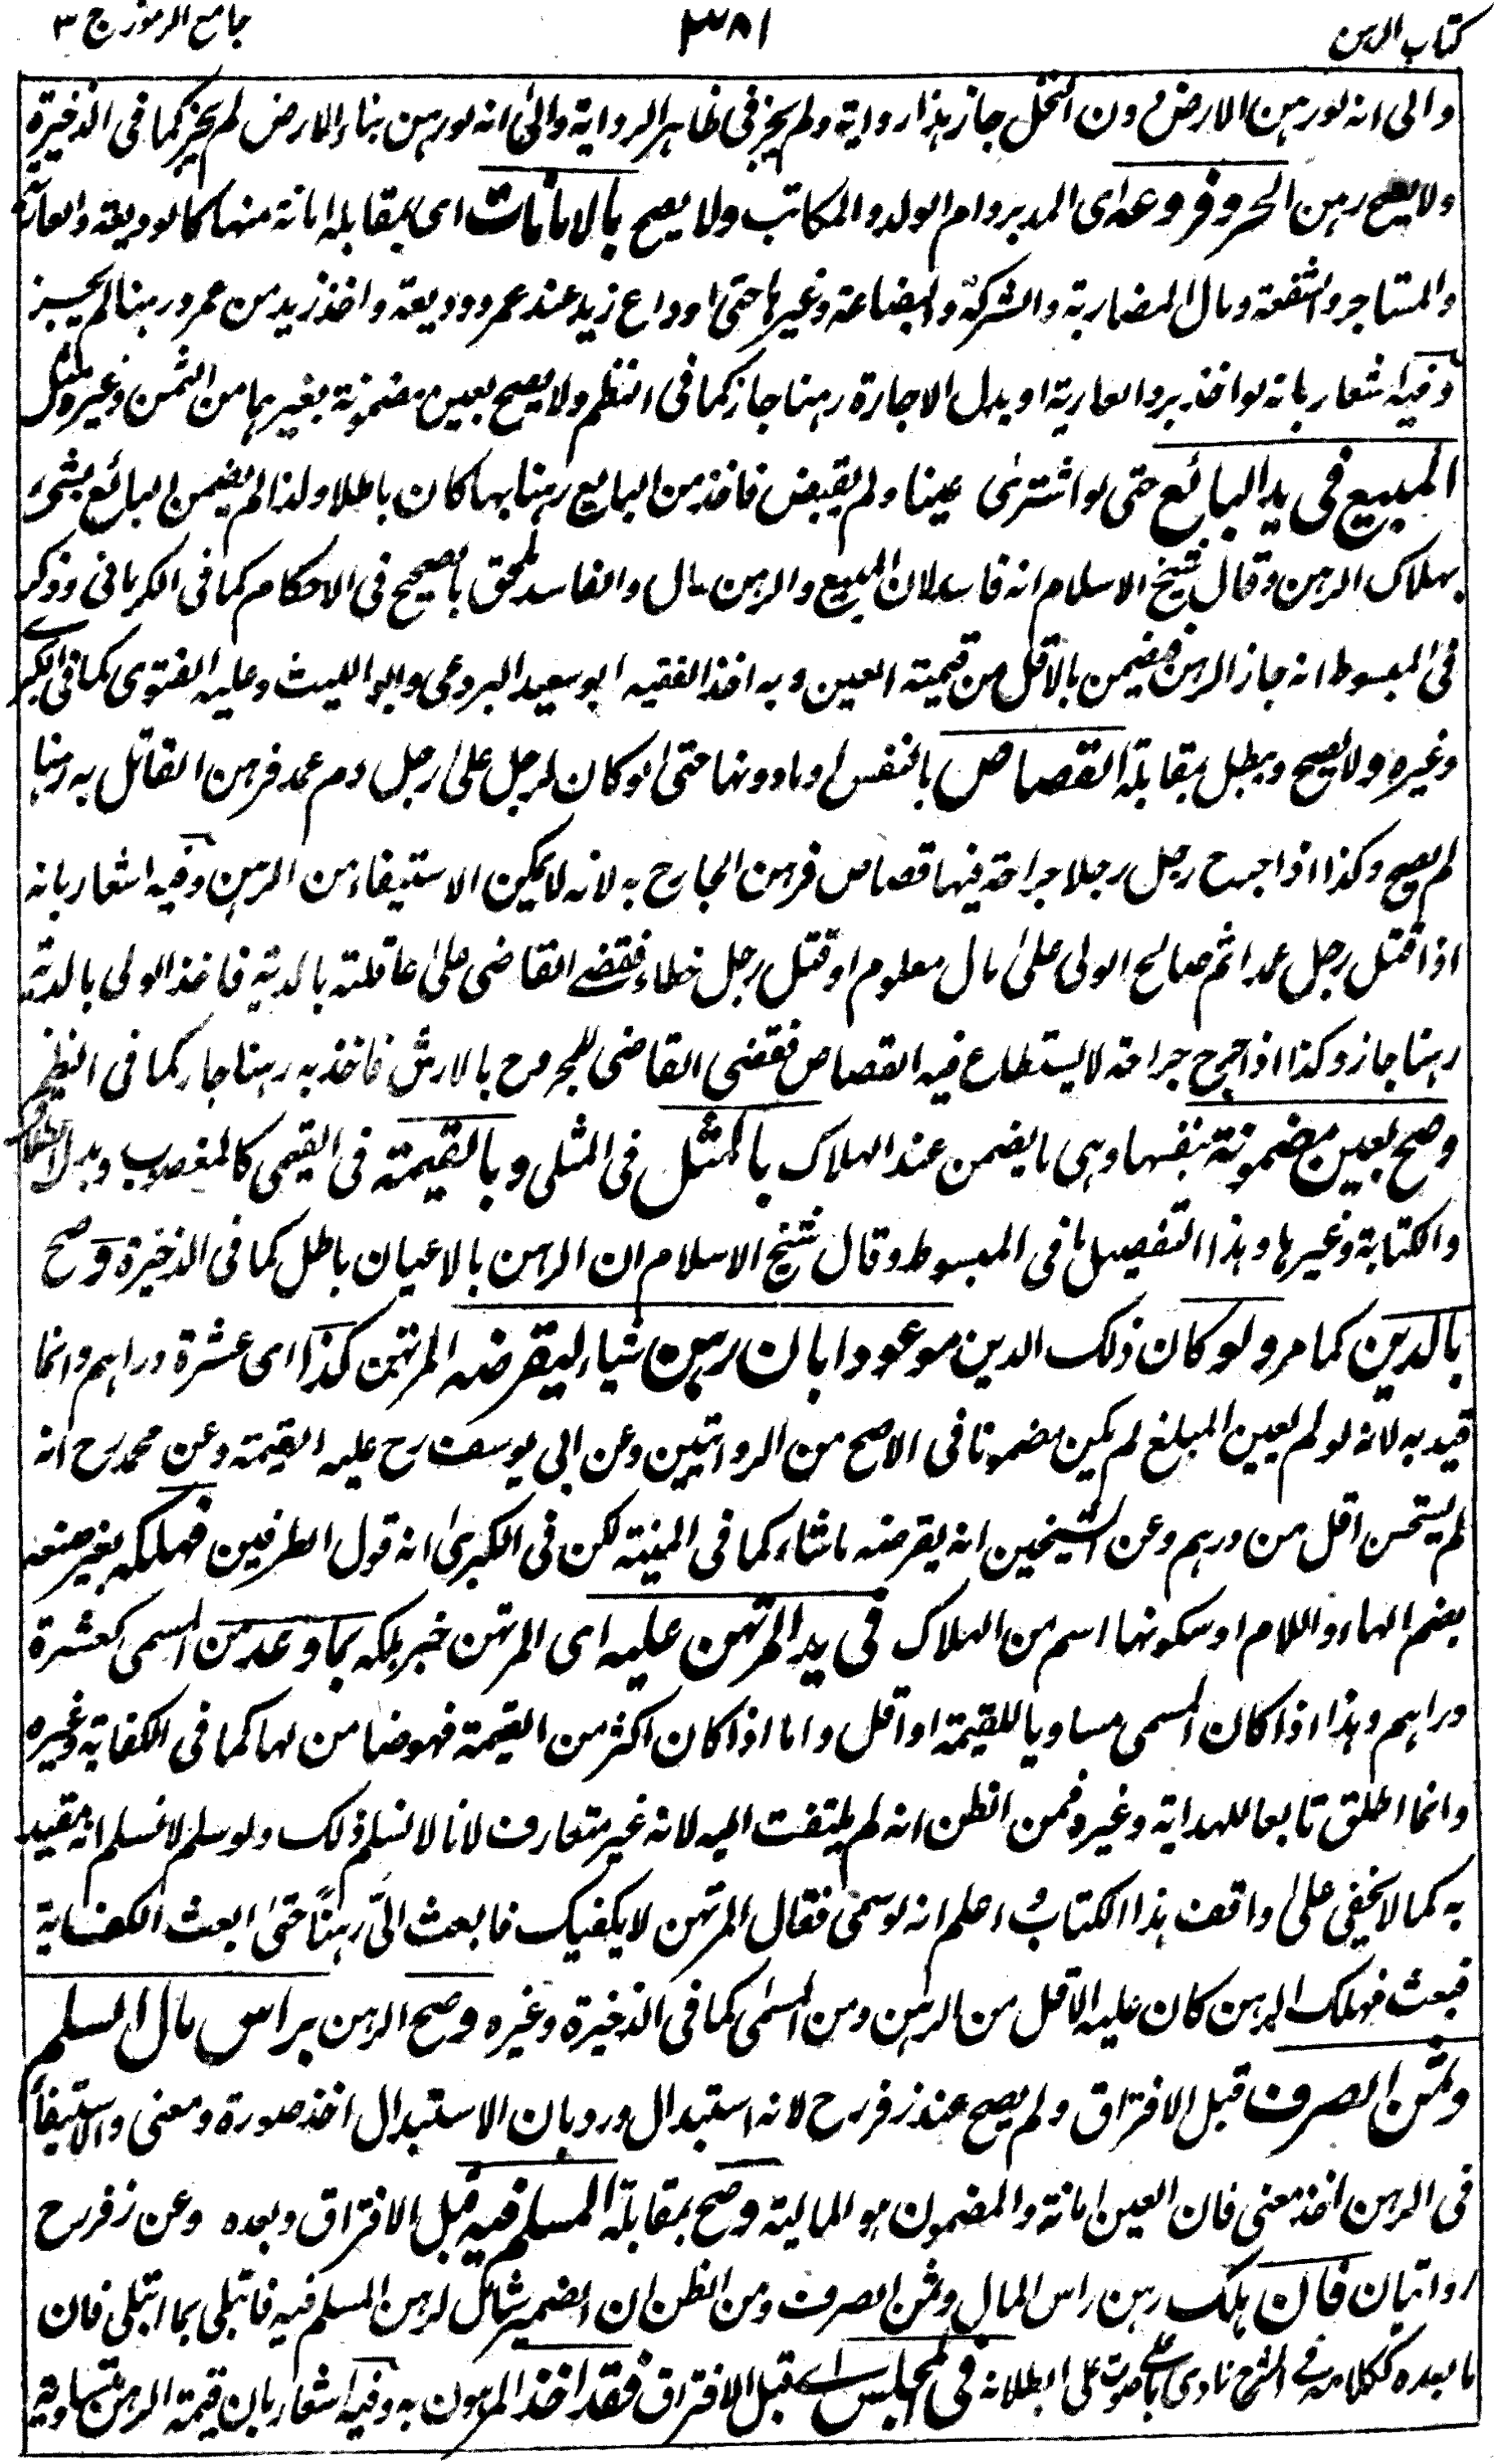 كتاب الرهن ٣٨١ جامع الرموز ج ٣
والى انه لو رهن الارض دون النخل جاز هذا رواية ولم يجز في ظاهر الرواية والى انه لو رهن بناء الارض لم يجز كما في الذخيرة
ولا يصح رهن الحر وفروعه اى المدبر وام الولد والمكاتب ولا يصح بالامانات اى بمقابلة امانة منها كالوديعة والعارية
والمستاجر والشفعة ومال المضاربة والشركة والبضاعة وغيرها حتى اوداع زيد عند عمرو وديعة واخذ زيد من عمرو رهنا لم يجز
وفيه اشعار بانه لو اخذ برد العارية او بدل الاجارة رهنا جاز كما في النظم ولا يصح بعين مضمونة بغيرهما من الثمن وغيره مثل
المبيع في يد البائع حتى لو اشترى عينا ولم يقبض فاخذ من البايع رهنا بها كان باطلا ولذا لم يضمن البائع بشئ
بهلاك الرهن وقال شيخ الاسلام انه فاسد لان المبيع والرهن مال والفاسد ملحق بالصحيح في الاحكام كما في الكرمانى وذكر
في المبسوط انه جاز الرهن فيضمن بالاقل من قيمته العين وبه اخذ الفقيه ابو سعيد البردعى وابو الليث وعليه الفتوى كما في الكبرى
وغيره ولا يصح ويبطل بمقابلة القصاص بالنفس او ما دونها حتى لو كان لرجل على رجل دم عمد فرهن القاتل به رهنا
لم يصح وكذا اذا جرح رجل رجلا جراحة فيها قصاص فرهن الجارح به لانه لا يمكن الاستيفاء من الرهن وفيه اشعار بانه
اذا قتل رجل عمدا ثم صالح الولى على مال معلوم او قتل رجل خطاء فقضى القاضى على عاقلته بالدية فاخذ الولى بالدية
رهنا جاز وكذا اذا جرح جراحة لا يستطاع فيه القصاص فقضى القاضى للمجروح بالارش فاخذ به رهنا جاز كما في النظم
وصح بعين مضمونة بنفسها وهى ما يضمن عند الهلاك بالمثل في المثلى وبالقيمة في القيمى كالمغصوب وبدل
والكتابة وغيرها وهذا التفصيل ما في المبسوط وقال شيخ الاسلام ان الرهن بالاعيان باطل كما في الذخيرة وصح
بالدين كما مر ولو كان ذلك الدين موعودا بان رهن شياء ليقرضه المرتهن كذا اى عشرة دراهم وانما
قيد به لانه لو لم يعين المبلغ لم يكن مضمونا في الاصح من الروايتين وعن ابى يوسف رح عليه القيمة وعن محمد رح انه
لم يستحسن اقل من درهم وعن الشيخين انه يقرضه ما شاء كما في المنية لكن في الكبرى انه قول الطرفين فهلكه بغير صنعه
بضم الهاء واللام او سكونها اسم من الهلاك في يد المرتهن عليه اى المرتهن خبر هلكه بما وعد من المسمى كعشرة
دراهم وهذا اذا كان المسمى مساويا للقيمة او اقل واما اذا كان اكثر من القيمة فهو ضامن لها كما في الكفاية وغيره
وانما اطلق تابعا للهداية وغيره فمن الظن انه لم يلتفت اليه لانه غير متعارف لانا لا نسلم ذلك ولو سلم لا نسلم انه يقيد
به كما لا يخفى على واقف هذا الكتاب و اعلم انه لو سمى فقال المرتهن لا يكفيك فابعث الىّ رهناً حتى ابعث الكفاية
فبعث فهلك الرهن كان عليه الاقل من الرهن ومن المسمى كما في الذخيرة وغيره وصح الرهن براس مال السلم
وثمن الصرف قبل الافتراق ولم يصح عند زفر رح لانه استبدال ورد بان الاستبدال اخذ صورة ومعنى والاستيفاء
في الرهن اخذ معنى فان العين امانة والمضمون هو المالية وصح بمقابلة المسلم فيه قبل الافتراق وبعده وعن زفر رح
روايتان فان هلك رهن راس المال وثمن الصرف ومن الظن ان الضمير شامل لرهن المسلم فيه فابتلى بما ابتلى فان
ما بعده ككلامه في الشرح نادى باعلى صوت على ابطلانه في المجلس اى قبل الافتراق فقد اخذ المرهون به وفيه اشعار بان قيمة الرهن متساوية